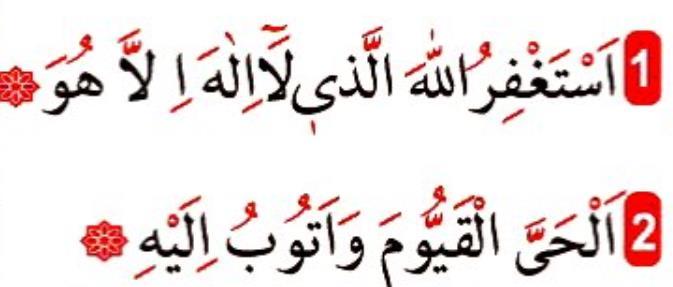 1 اَسْتَغْفِرُ اللهَ الَّذ۪ي لَٓا اِلٰهَ اِلَّا هُوَ
2 اَلْحَيَّ الْقَيُّومَ وَاَتُوبُ اِلَيْهِ